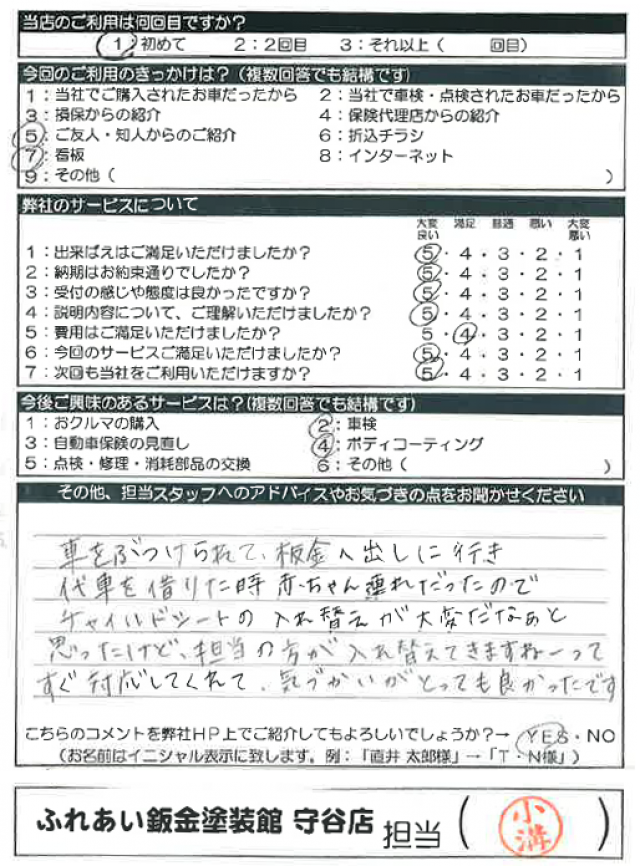 当店のご利用は何回目ですか？
1：初めて 2：2回目 3：それ以上（ 回目）
今回のご利用のきっかけは？（複数回答でも結構です）
1：当社でご購入されたお車だったから 2：当社で車検・点検されたお車だったから
3：損保からの紹介 4：保険代理店からの紹介
5：ご友人・知人からのご紹介 6：折込チラシ
7：看板 8：インターネット
9：その他（ ）
弊社のサービスについて
大変良い 満足 普通 悪い 大変悪い
1：出来ばえはご満足いただけましたか？ 5・4・3・2・1
2：納期はお約束通りでしたか？ 5・4・3・2・1
3：受付の感じや態度は良かったですか？ 5・4・3・2・1
4：説明内容について、ご理解いただけましたか？ 5・4・3・2・1
5：費用はご満足いただけましたか？ 5・4・3・2・1
6：今回のサービスご満足いただけましたか？ 5・4・3・2・1
7：次回も当社をご利用いただけますか？ 5・4・3・2・1
今後ご興味のあるサービスは？（複数回答でも結構です）
1：おクルマの購入 2：車検
3：自動車保険の見直し 4：ボディコーティング
5：点検・修理・消耗部品の交換 6：その他（ ）
その他、担当スタッフへのアドバイスやお気づきの点をお聞かせください
車をぶつけられて、板金へ出しに行き
代車を借りた時 赤ちゃん連れだったので
チャイルドシートの入れ替えが大変だなぁと
思ったけど、担当の方が入れ替えてきますねーって
すぐ対応してくれて、気づかいがとっても良かったです
こちらのコメントを弊社HP上でご紹介してもよろしいでしょうか？→ YES・NO
（お名前はイニシャル表示に致します。例：「直井 太郎様」→「T・N様」）
ふれあい鈑金塗装館 守谷店 担当（ 小溝 ）